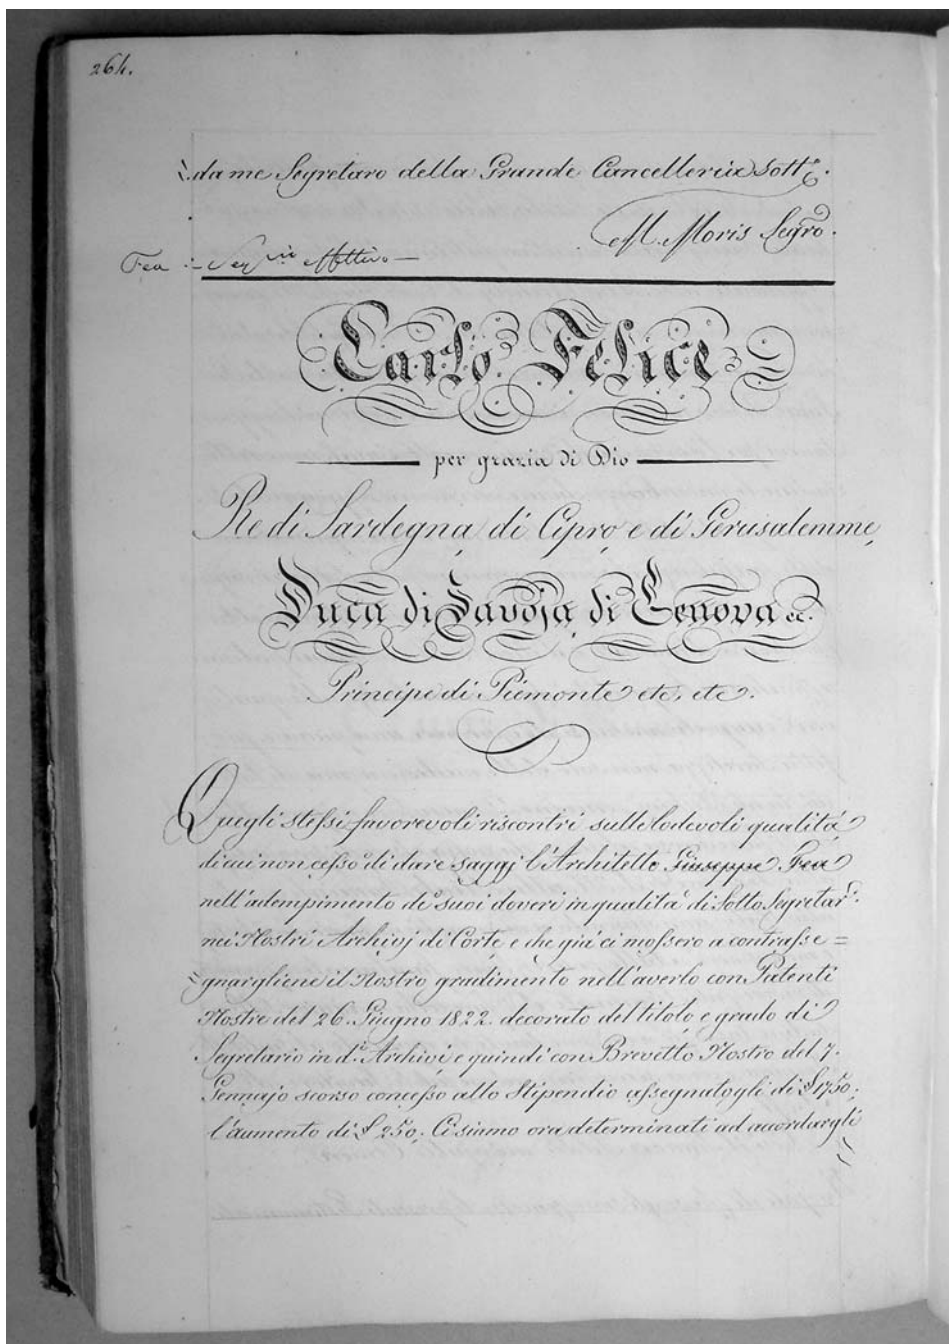 264.
da me Segretaro della Grande Cancelleria sott.º
M. Moris Segrō.
Fea - Seg.rio Effettivo -
Carlo Felice
per grazia di Dio
Re di Sardegna, di Cipro, e di Gerusalemme,
Duca di Savoja, di Genova ec.
Principe di Piemonte etc, etc.
Quegli stessi favorevoli riscontri sulle lodevoli qualità
di cui non cessò di dare saggj l'Architetto Giuseppe Fea
nell'adempimento de' suoi doveri in qualità di Sotto Segretar.º
nei Nostri Archivj di Corte, e che già ci mossero a contrasse=
gnargliene il Nostro gradimento nell'averlo con Patenti
Nostre del 26. Giugno 1822. decorato del titolo, e grado di
Segretario in d.i Archivi, e quindi con Brevetto Nostro del 7.
Gennajo scorso concesso allo Stipendio assegnatogli di £ 1750;
l'aumento di £ 250; Ci siamo ora determinati ad accordargli